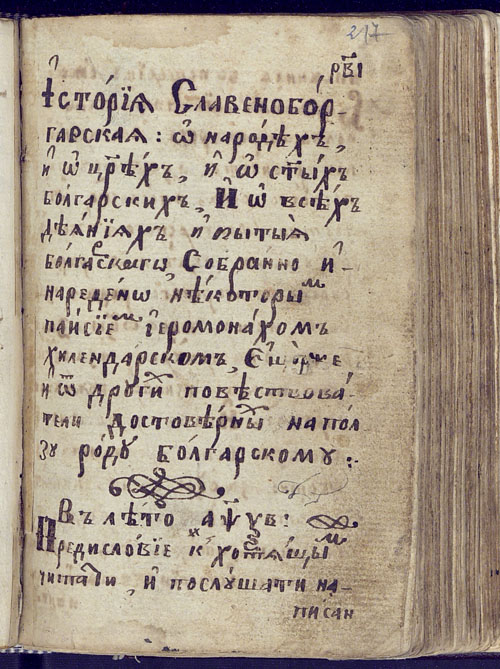 217
рв҃і
Їсторїѧ Славенобол-
гарская: ѿ народѣхъ,
и ѿ цр҃ѣхъ, и ѿ ст҃ыхъ
болгарскихъ, И ѿ всѣхъ
дѣѧнїѧхъ и бытыѧ
болгаскагѡ, Собранно и
нареденѡ нѣкоторымъ
паисїемъ їеромонахомъ
хилендарскомъ,
и ѿ други повѣствова-
тели достовѣрны на пол
зу роду болгарскому :·
Въ лѣто аѱ҃ѯв:
Предисловїе к хотящым
читати, и послушати на-
писан